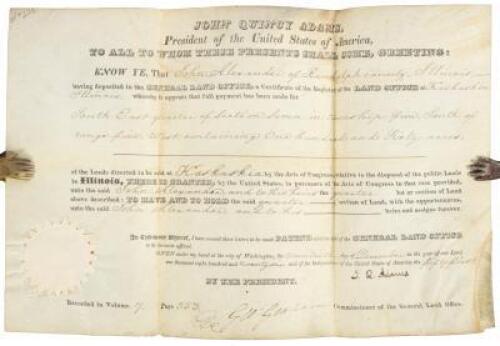 JOHN QUINCY ADAMS,
President of the United States of America,
TO ALL TO WHOM THESE PRESENTS SHALL COME, GREETING:
KNOW YE, That John Alexander of Randolph county, Illinois
having deposited in the GENERAL LAND OFFICE, a Certificate of the Register of the LAND OFFICE at Kaskaskia
Illinois whereby it appears that full payment has been made for
South East quarter of Section Seven in Township four South of
range five West containing One hundred and Sixty acres
of the Lands directed to be sold at Kaskaskia by the Acts of Congress relative to the disposal of the public Lands
in Illinois, THERE IS GRANTED, by the United States, in pursuance of the Acts of Congress in that case provided,
unto the said John Alexander and to his heirs the quarter lot or section of Land
above described: TO HAVE AND TO HOLD the said quarter section of Land, with the appurtenances,
unto the said John Alexander and to his heirs and assigns forever.
In Testimony Whereof, I have caused these Letters to be made PATENT of the GENERAL LAND OFFICE
to be hereunto affixed.
GIVEN under my hand at the city of Washington, the of in the year of our Lord
one thousand eight hundred and and of the Independence of the United States of America the
BY THE PRESIDENT, J. Q. Adams
Recorded in Volume 9 Page 353 Commissioner of the General Land Office.